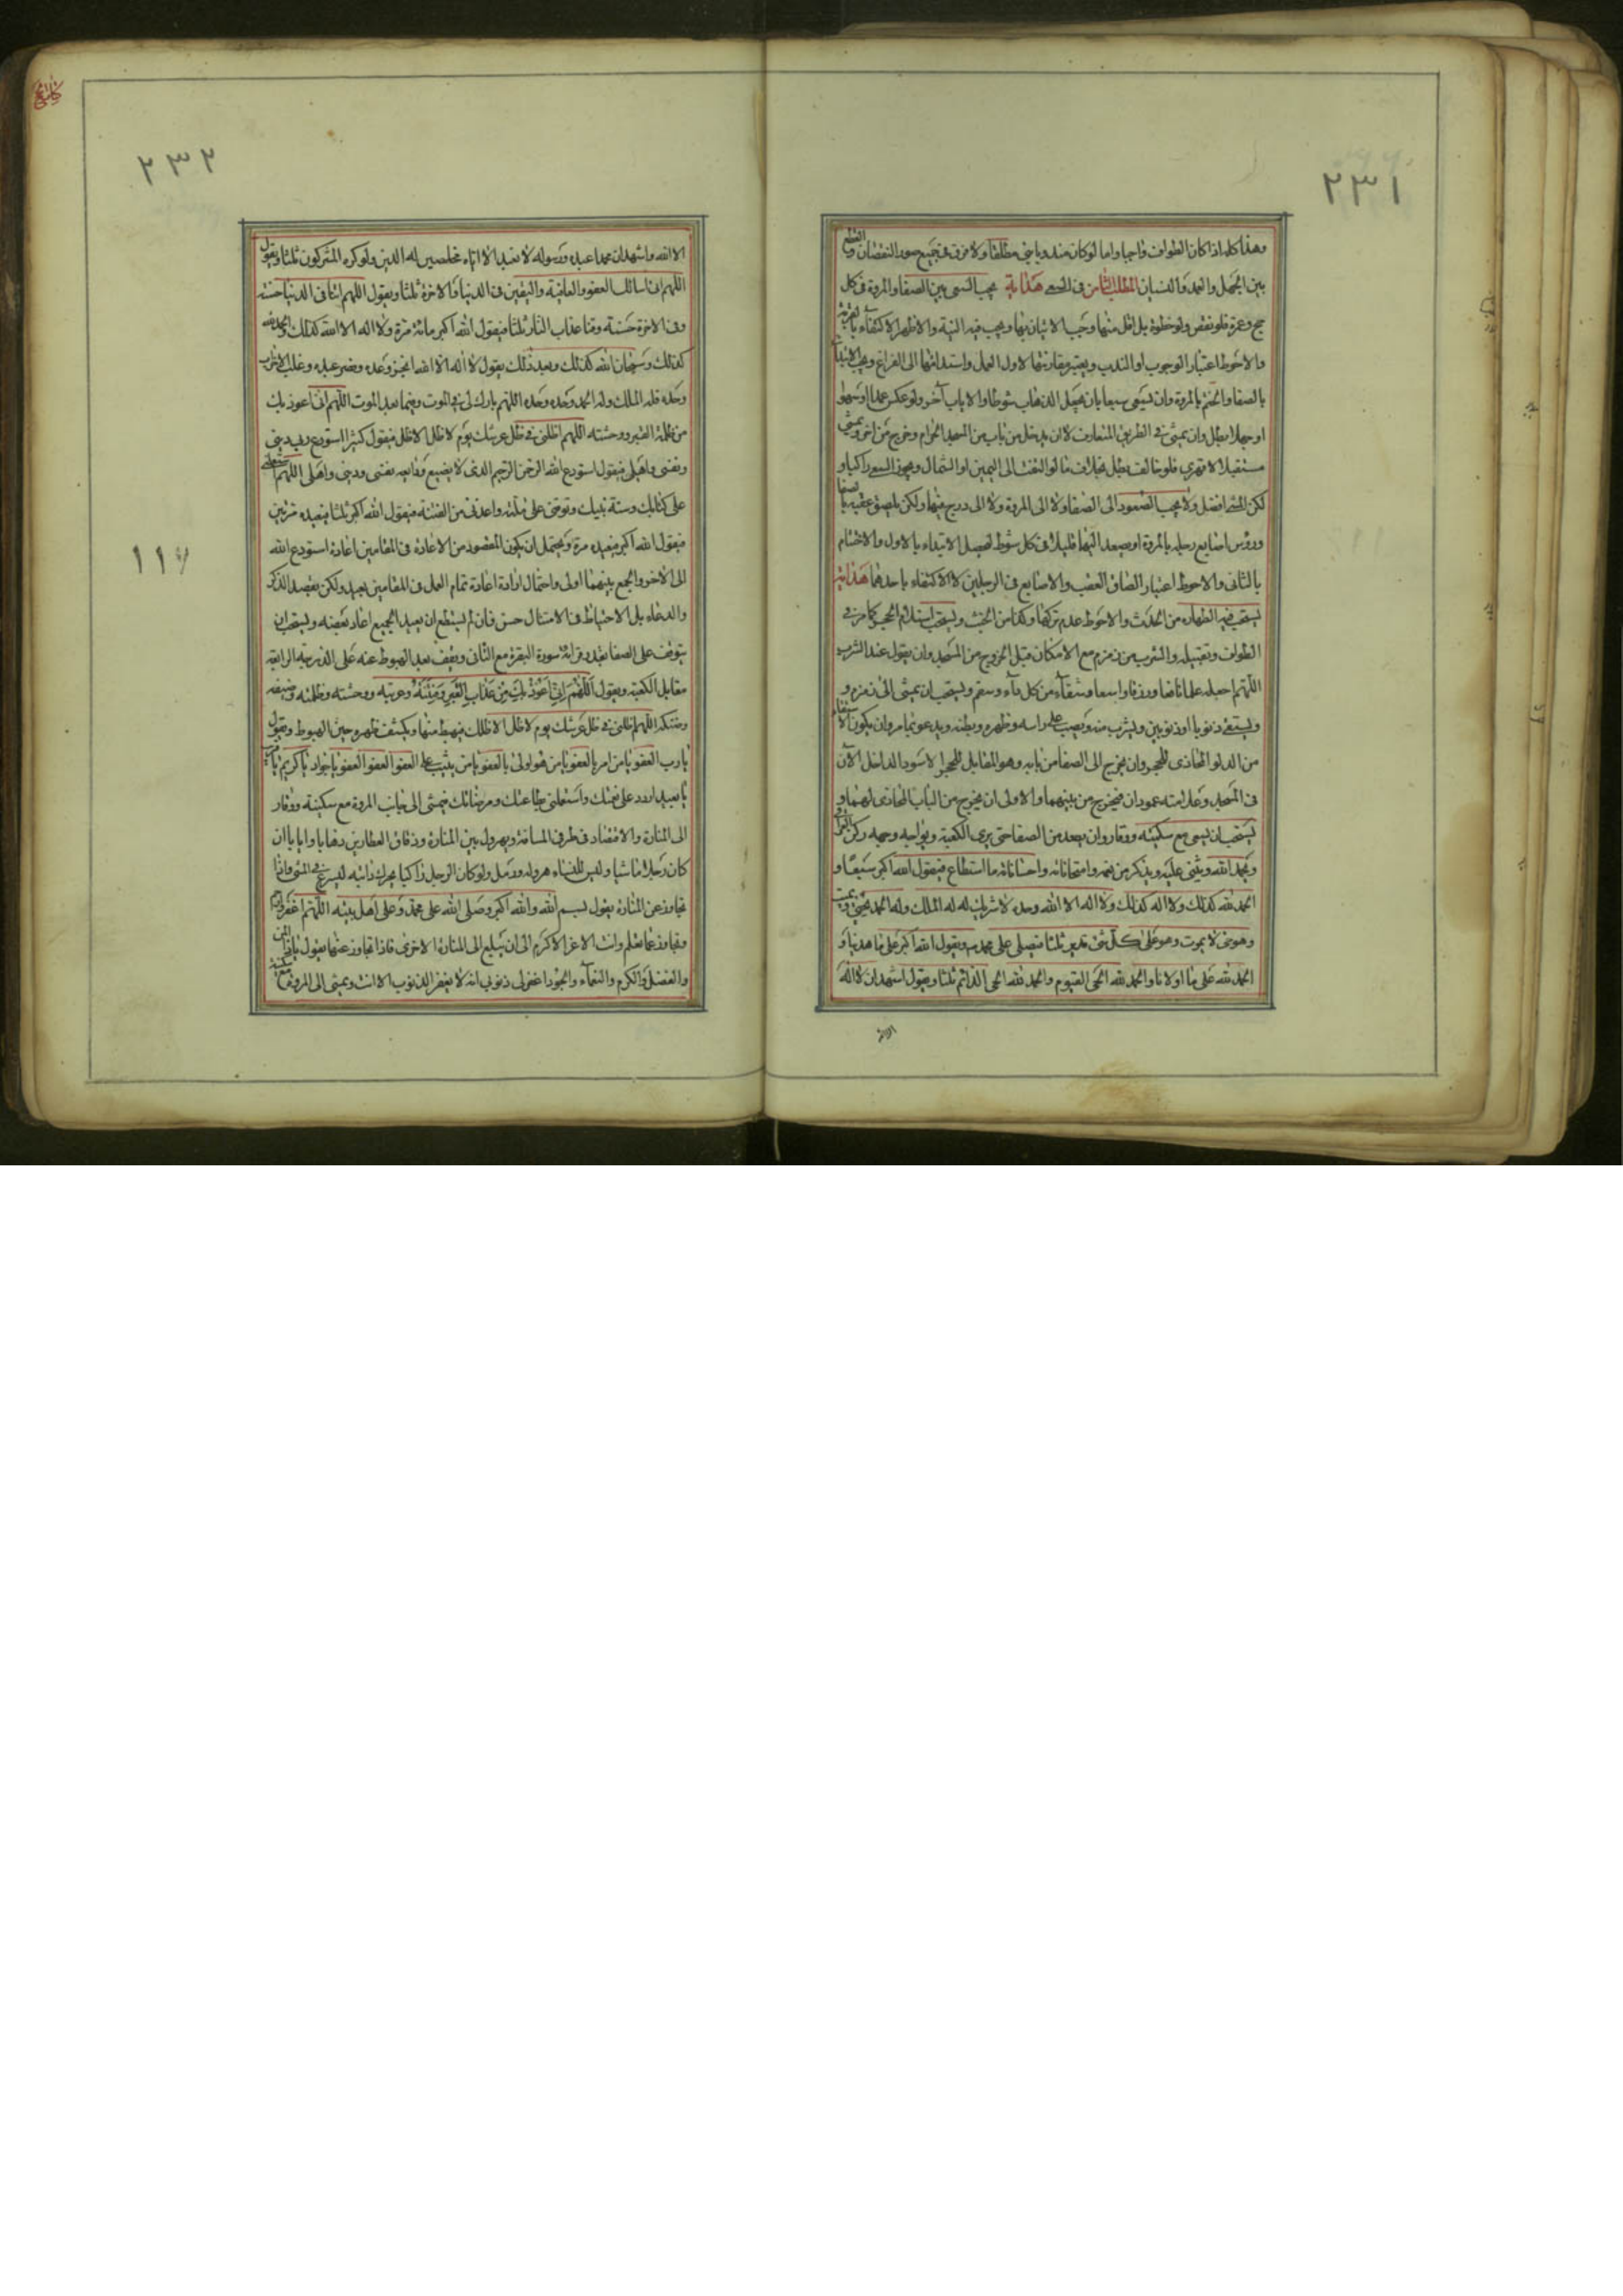 ٢٣١
وهذا كله اذا كان الطواف واجبا واما لو كان مندوبا يبنى مطلقا ولا فرق فى جميع صور النقصان والقطع
بين الجهل والعمد والنسيان المطلب الثامن فى السعى هداية يجب السعى بين الصفا والمروة فى كل
حج وعمرة فلو نقص ولو خطوة بل اقل منها وجب الاتيان بها ويجب فيه النية والاظهر الاكتفاء بالقربة
والاحوط اعتبار الوجوب او الندب ويعتبر مقارنتها لاول العمل واستدامتها الى الفراغ ويجب الابتداء
بالصفا والختم بالمروة وان يسعى سبعا بان يجعل الذهاب شوطا والاياب آخر ولو عكس عمدا او سهوا
او جهلا بطل وان يمشى فى الطريق المتعارف لا ان يدخل من باب من المسجد الحرام ويخرج من آخر ويمشى
مستقبلا لا قهقرى فلو خالف بطل بخلاف ما لو التفت الى اليمين او الشمال ويجوز السعى راكبا و
لكن المشى افضل ولا يجب الصعود الى الصفا ولا الى المروة ولا الى درج فيهما ولكن يلصق عقبيه بالصفا
ورؤس اصابع رجليه بالمروة او يصعد اليهما قليلا فى كل شوط ليحصل الابتداء بالاول والاختتام
بالثانى والاحوط اعتبار الصاق العقب والاصابع فى الرجلين لا الاكتفاء باحدهما هداية
يستحب فيه الطهارة من الحدث والاحوط عدم تركها وكذا من الخبث ويستحب استلام الحجر كما مر فى
الطواف وتقبيله والشرب من زمزم مع الامكان قبل الخروج من المسجد وان يقول عند الشرب
اللهم اجعله علما نافعا ورزقا واسعا وشفاء من كل داء وسقم ويستحب ان يمشى الى زمزم و
يستقى ذنوبا او ذنوبين ويشرب منه ويصب على راسه وظهره وبطنه ويدعو بما مر وان يكون الاستقاء
من الدلو المحاذى للحجر وان يخرج الى الصفا من بابه وهو المقابل للحجر الاسود الداخل الآن
فى المسجد وعلامته عمودان فيخرج من بينهما والاولى ان يخرج من الباب المحاذى لهما و
يستحب ان يسعى مع سكينة ووقار وان يصعد من الصفا حتى يرى الكعبة ويواجه وجهه ركن العراقى
ويحمد الله ويثنى عليه ويذكر من نعمه وامتحاناته واحساناته ما استطاع فيقول الله اكبر سبعا و
الحمد لله كذلك ولا اله كذلك ولا اله الا الله وحده لا شريك له له الملك وله الحمد يحيى ويميت
وهو حى لا يموت وهو على كل شئ قدير ثلثا فيصلى على محمد ويقول الله اكبر على ما هدينا و
الحمد لله على ما اولانا والحمد لله الحى القيوم والحمد لله الحى الدائم ثلثا ويقول اشهد ان لا اله
الا الله
٢٣٢
الا الله واشهد ان محمدا عبده ورسوله لا نعبد الا اياه مخلصين له الدين ولو كره المشركون ثلثا ويقول
اللهم انى اسالك العفو والعافية واليقين فى الدنيا والاخرة ثلثا ويقول اللهم اتنا فى الدنيا حسنة
وفى الاخرة حسنة وقنا عذاب النار ثلثا فيقول الله اكبر مائة مرة ولا اله الا الله كذلك والحمد لله
كذلك وسبحان الله كذلك وبعد ذلك يقول لا اله الا الله انجز وعده ونصر عبده وغلب الاحزاب
وحده فله الملك وله الحمد وحده وحده اللهم بارك لى فى الموت وفيما بعد الموت اللهم انى اعوذ بك
من ظلمة القبر ووحشته اللهم اظلنى فى ظل عرشك يوم لا ظل الا ظلك فيقول كثيرا استودع ربى دينى
ونفسى واهلى فيقول استودع الله الرحمن الرحيم الذى لا يضيع ودايعه نفسى ودينى واهلى اللهم استعملنى
على كتابك وسنة نبيك وتوفنى على ملته واعذنى من الفتنة فيقول الله اكبر ثلثا فيعيده مرتين
فيقول الله اكبر فيعيده مرة ويحتمل ان يكون المقصود من الاعادة فى المقامين اعادة استودع الله
الى الاخر والجمع بينهما اولى واحتمال ارادة اعادة تمام العمل فى المقامين بعيد ولكن بقصد الذكر
والدعاء بل الاحتياط فى الامتثال حسن فان لم يستطع ان يعيد الجميع اعاد بعضه ويستحب ان
يتوقف على الصفا بقدر قرائة سورة البقرة مع التانى ويقف بعد الهبوط عنه على الدرجة الرابعة
مقابل الكعبة ويقول اللهم انى اعوذ بك من عذاب القبر وفتنته وغربته ووحشته وظلمته وضيقه
وضنكه اللهم اظلنى فى ظل عرشك يوم لا ظل الا ظلك فيهبط منها ويكشف ظهره حين الهبوط ويقول
يا رب العفو يا من امر بالعفو يا من هو اولى بالعفو يا من يثيب على العفو العفو العفو العفو يا جواد يا كريم يا قريب
يا بعيد اردد على نعمتك واستعملنى بطاعتك ومرضاتك فيمشى الى جانب المروة مع سكينة ووقار
الى المنارة والاقتصاد فى طرفى المسافة ويهرول بين المنارة وزقاق العطارين ذهابا وايابا ان
كان رجلا ماشيا وليس للنساء هرولة ورمل ولو كان الرجل راكبا يحرك دابته ليسرع فى المشى واذا
تجاوز عن المنارة يقول بسم الله والله اكبر وصلى الله على محمد وعلى اهل بيته اللهم اغفر وارحم
وتجاوز عما تعلم وانت الاعز الاكرم الى ان يبلغ الى المنارة الاخرى فاذا تجاوز عنها يقول يا ذا المن
والفضل والكرم والنعماء والجود اغفر لى ذنوبى انه لا يغفر الذنوب الا انت ويمشى الى المروة مع سكينة